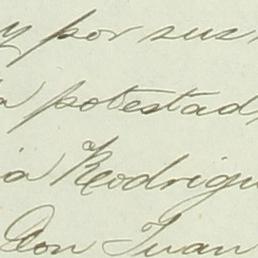 y por sus
a potestad,
ia Rodrigu
Don Juan